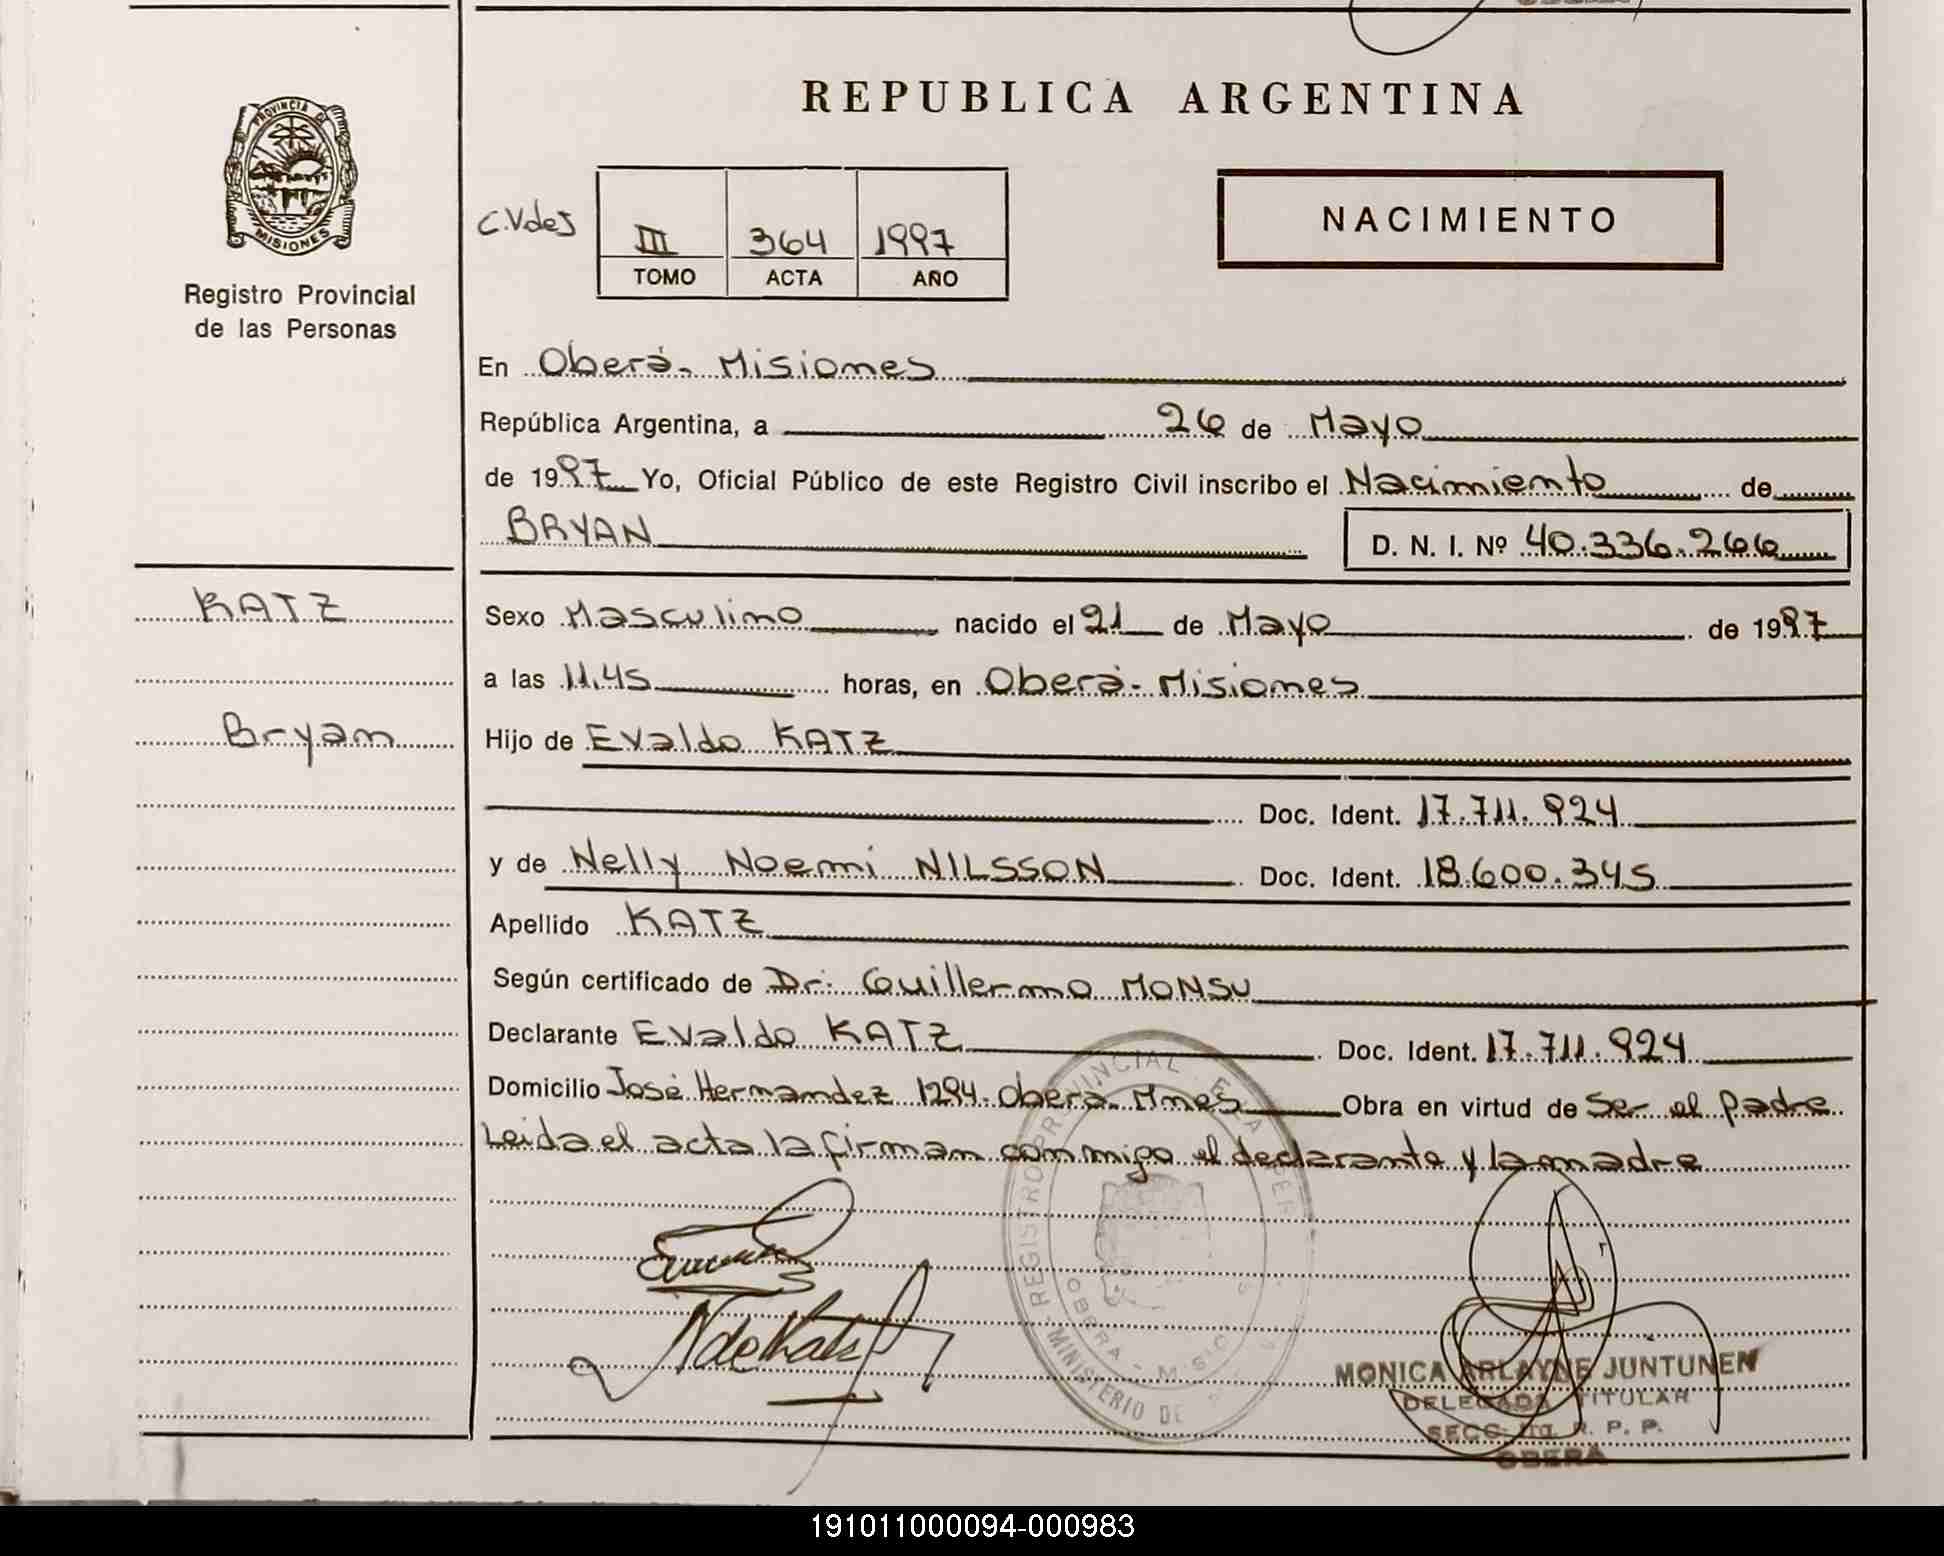 REPUBLICA ARGENTINA
PROVINCIA D
MISIONES
Registro Provincial
de las Personas
C.VdeJ
III 364 1997
TOMO ACTA AÑO
NACIMIENTO
En Oberá - Misiones
República Argentina, a 26 de Mayo
de 1997 Yo, Oficial Público de este Registro Civil inscribo el Nacimiento de
BRYAN D. N. I. Nº 40.336.266
KATZ
Bryan
Sexo Masculino nacido el 21 de Mayo de 1997
a las 11,45 horas, en Oberá - Misiones
Hijo de Evaldo KATZ
Doc. Ident. 17.711.924
y de Nelly Noemi NILSSON Doc. Ident. 18.600.345
Apellido KATZ
Según certificado de Dr. Guillermo MONSU
Declarante Evaldo KATZ Doc. Ident. 17.711.924
Domicilio José Hernandez 1294. Oberá - Mnes Obra en virtud de Ser el padre
Leida el acta la firman conmigo el declarante y la madre
REGISTRO PROVINCIAL
OBERA - MISIO
MINISTERIO DE
NdeKatz
MONICA ARLAYNE JUNTUNEN
DELEGADA TITULAR
SECC. R. P. P.
OBERA
191011000094-000983